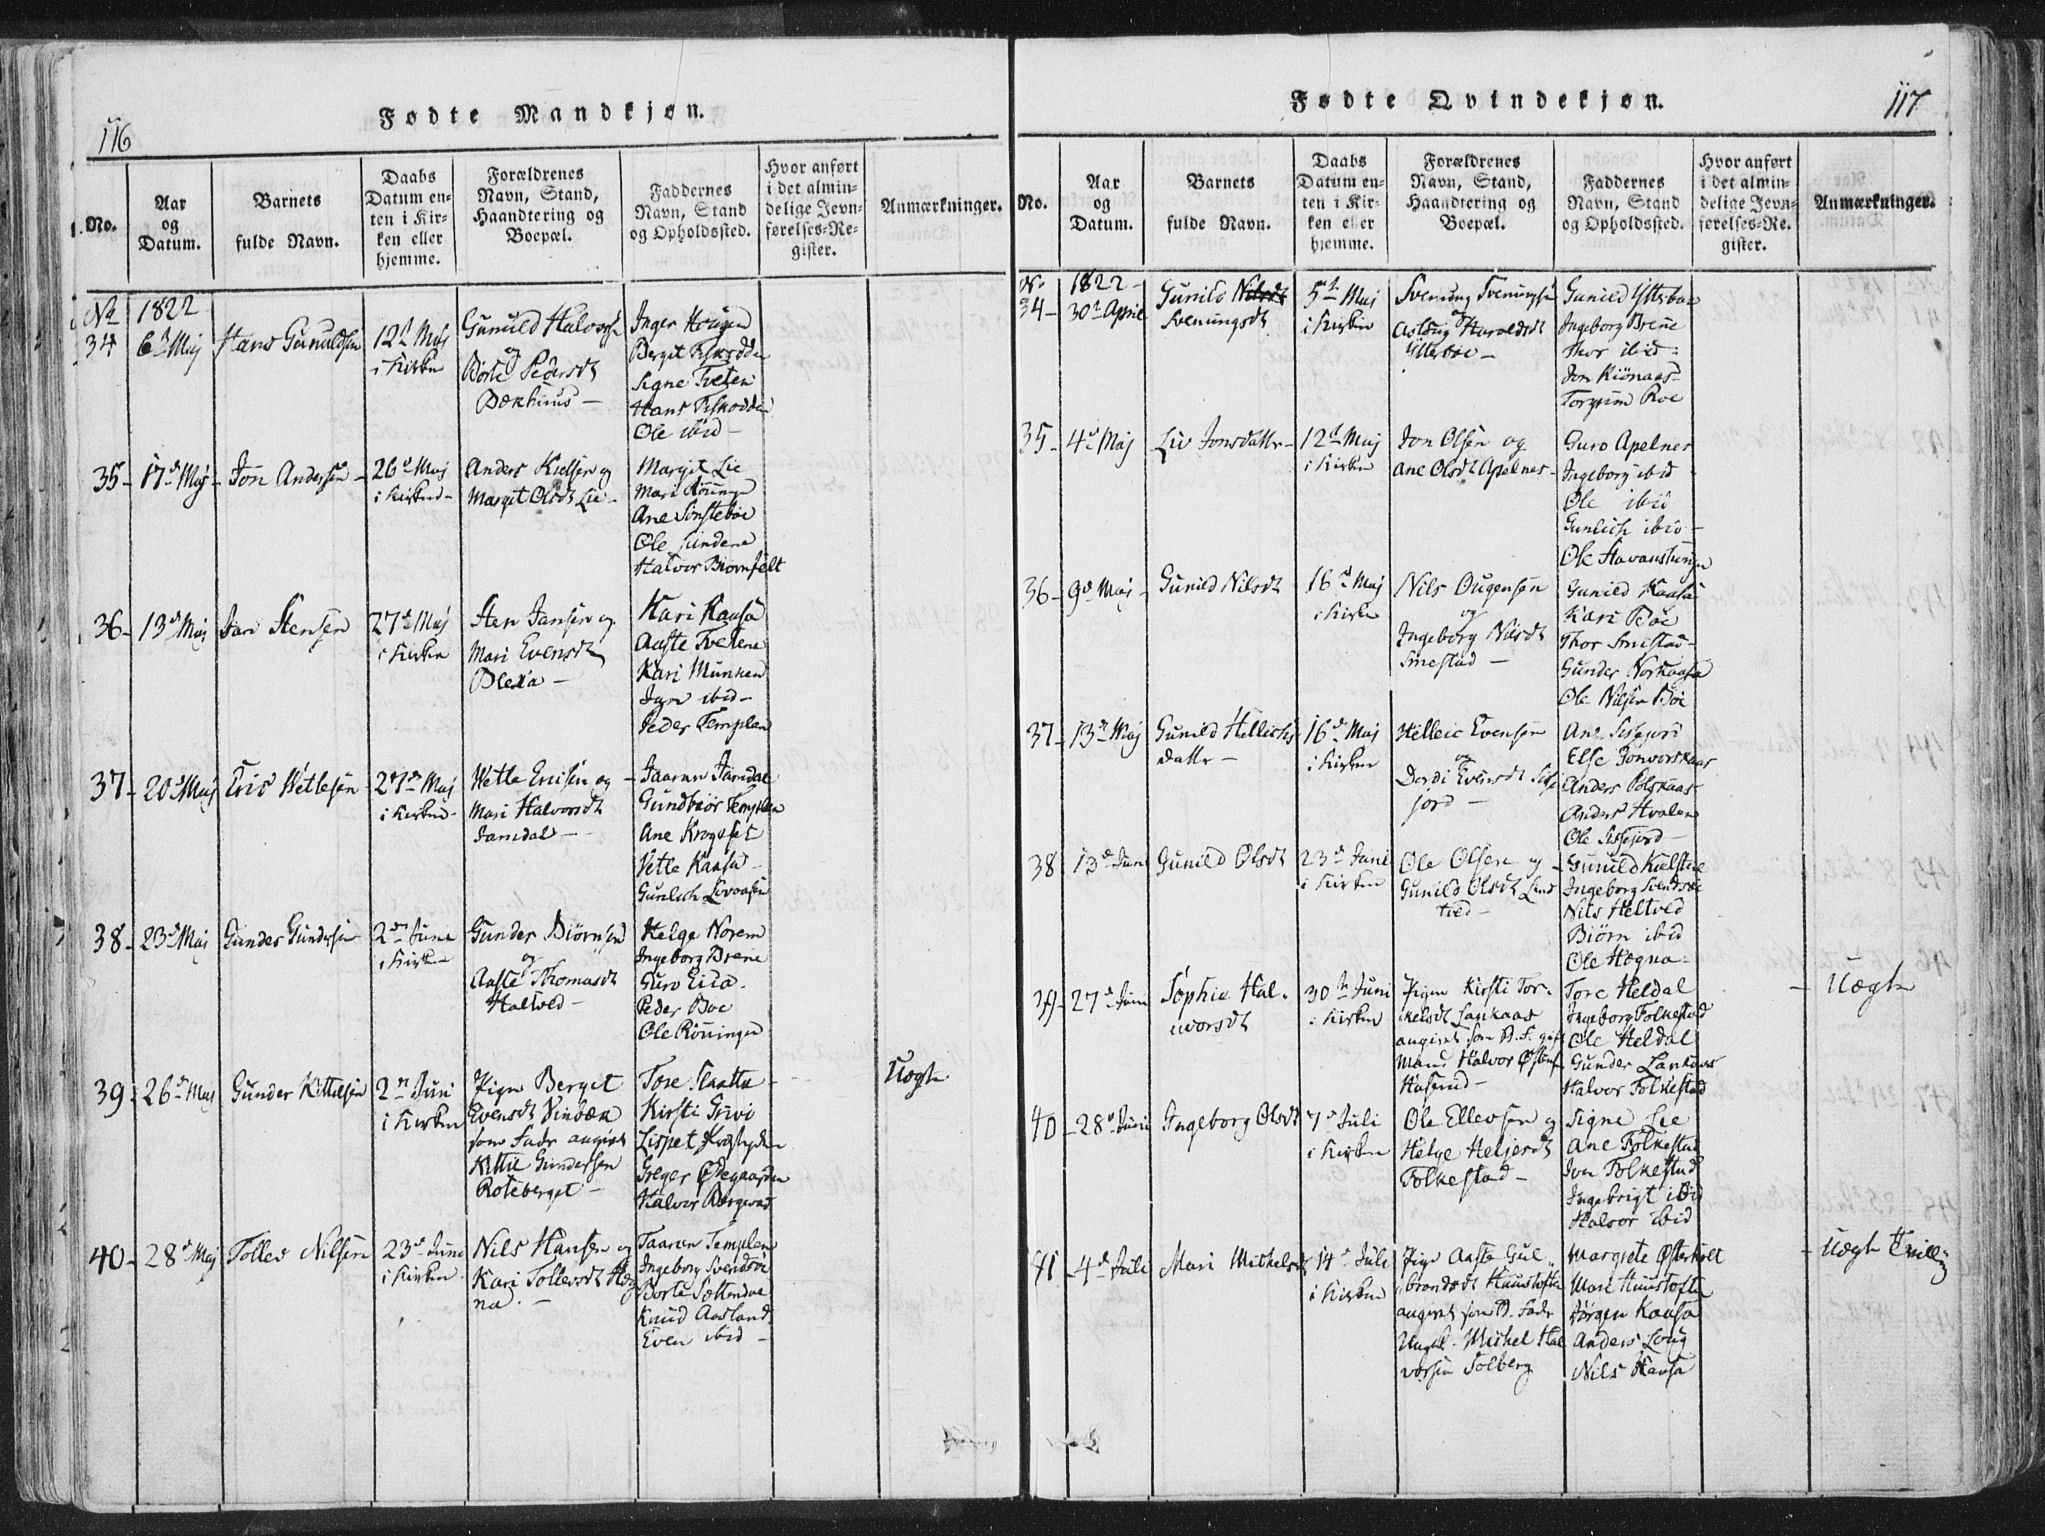 116
Fødte Mandkjøn.
No.
Aar
og
Datum.
Barnets
fulde Navn.
Daabs
Datum en-
ten i Kir-
ken eller
hjemme.
Forældrenes
Navn, Stand,
Haandtering og
Boepæl.
Faddernes
Navn, Stand
og Opholdssted.
Hvor anført
i det almin-
delige Jevn-
førelses-Re-
gister.
Anmærkninger.
No
1822
34
6t Maj
Hans Gunuldsen
12t Maj
i Kirken
Gunuld Halvors
og
Borte Pedersdt
Bækhuus —
Inger Hougen
Bergit Fiskodden
Signe Tveten
Hans Fiskodden
Ole ibid —
35 -
17d Maj -
Jon Andersen -
26d Maj
i Kirken -
Anders Kielsen og
Margit Olsdt Lie -
Margit Lie
Mari Rounge
Ane Sønstebøe
Ole Lindene
Halvor Biørnfelt
36 -
13d Maj
Jan Stensen
27d Maj
i Kirken
Sten Jansen og
Mari Evensdt
Blexa —
Kari Kaasa
Aaste Tvetene
Kari Munken
Jan ibid —
Peder Templen
37 -
20d Maj
Eric Wetlesen
27d Maj
i Kirken -
Wetle Ericsen og -
Mari Halvorsdt
Jamdal —
Taaran Jamdal
Gundbiør Templen
Ane Krogset
Vetle Kaasa -
Gunlech
38 -
23d Maj
Gunder Gundersen
2den June
i Kirken
Gunder Biørnsen
og
Aaste Thomasdt
Haltved —
Helge Norem
Ingeborg Brene
Guro Eica -
Peder Boe
Ole Rønningen
39 -
26d Maj
Gunder Kittelsen
2n Juni
i Kirken
Pigen Berget
Evensdt Vinbæk
som Fadr angives
Kittil Gundersen
Roteberget —
Tore Slaatta
Kirsti Grivi
Lispet
Greger Ødegaarden
Halvor Bergvad
Uægte
40 -
28d Maj
Tollev Nilsen
23d June
i Kirken
Nils Hansen og
Kari Tollevsdt Høg
na. —
Taaran Templen
Ingeborg Svendsøe
Borte Sættendal
Knud Aasland
Even ibid —
117
Fødte Qvindekjøn.
No.
Aar
og
Datum.
Barnets
fulde Navn.
Daabs
Datum en-
ten i Kir-
ken eller
hjemme.
Forældrenes
Navn, Stand,
Haandtering og
Boepæl.
Faddernes
Navn, Stand
og Opholdssted.
Hvor anført
i det almin-
delige Jevn-
førelses-Re-
gister.
Anmærkninger.
No
1822 -
34 -
30t April
Gunild Nilsdt
Svenungsdt
5t Maj
i Kirken
Svenung Svenungsen
og
Aslaug Haroldsdt
Ytterbøe —
Gunild Ytterbøe
Ingeborg Brene
Thor ibid -
Jon Kiønaas -
Torgrim Roe
35 -
4d Maj
Liv Jonsdattr -
12d Maj
i Kirken
Jon Olsen og
Ane Olsdt Apelnes -
Guro Apelnes
Ingeborg ibid
Ole ibid
Gunlich ibid -
Ole Stavanstungen
36 -
9d Maj -
Gunild Nilsdt
16d Maj
i Kirken
Nils Ougensen
og
Ingeborg Nilsdt
Smestad —
Gunild Kaasa
Kari Bøe
Thor Smestad -
Gunder Norkaasa
Ole Nilsen Bøe
37 -
13d Maj
Gunild Hellichs
dattr —
16d Maj
i Kirken
Helleic Evensen
og
Dordi Evensdt Sisse
jord —
Ane Sissejord
Else Bonvorskaas
Anders Olskaas
Anders Hvalen
Ole Sissejord —
38
13d Juni
Gunild Olsdt
23d Juni
i Kirken
Ole Olsen og -
Gunild Olsdt Lind
tved —
Gunuld Kielstue
Ingeborg Svendsøe
Nils Heltved
Biørn ibid
Ole Høgna -
39 -
27d Juni
Sophie Hal-
vorsdt
30t Juni
i Kirken
Pigen Kirsti Tor-
kelsdt Lankaas
angivet som B. F. gift
Mand Halvor
Haserud —
Tore Heldal
Ingeborg Folkestad
Ole Heldal
Gunder Lankaas
Halvor Folkestad
- Uægte
40
28d Juni
Ingeborg Olsdt
7d Juli
i Kirken
Ole Ellevsen og
Helge Heljersdt
Folkestad —
Signe Lie
Ane Folkestad
Iver Folkestad
Ingebrigt ibid
Halvor ibid
41
4d Juli
Mari Mickelsdt
14d Juli
i Kirken
Pige Aaste Gul-
brandsdt Huustoften
angivet som B. Fadr
Ungk. Mickel Hal
vorsen Solberg
Margrete Østerholt
Mari Huustoften
Jørgen Kaasa
Anders Loug
Nils Kaasa
- Uægte Tvilling